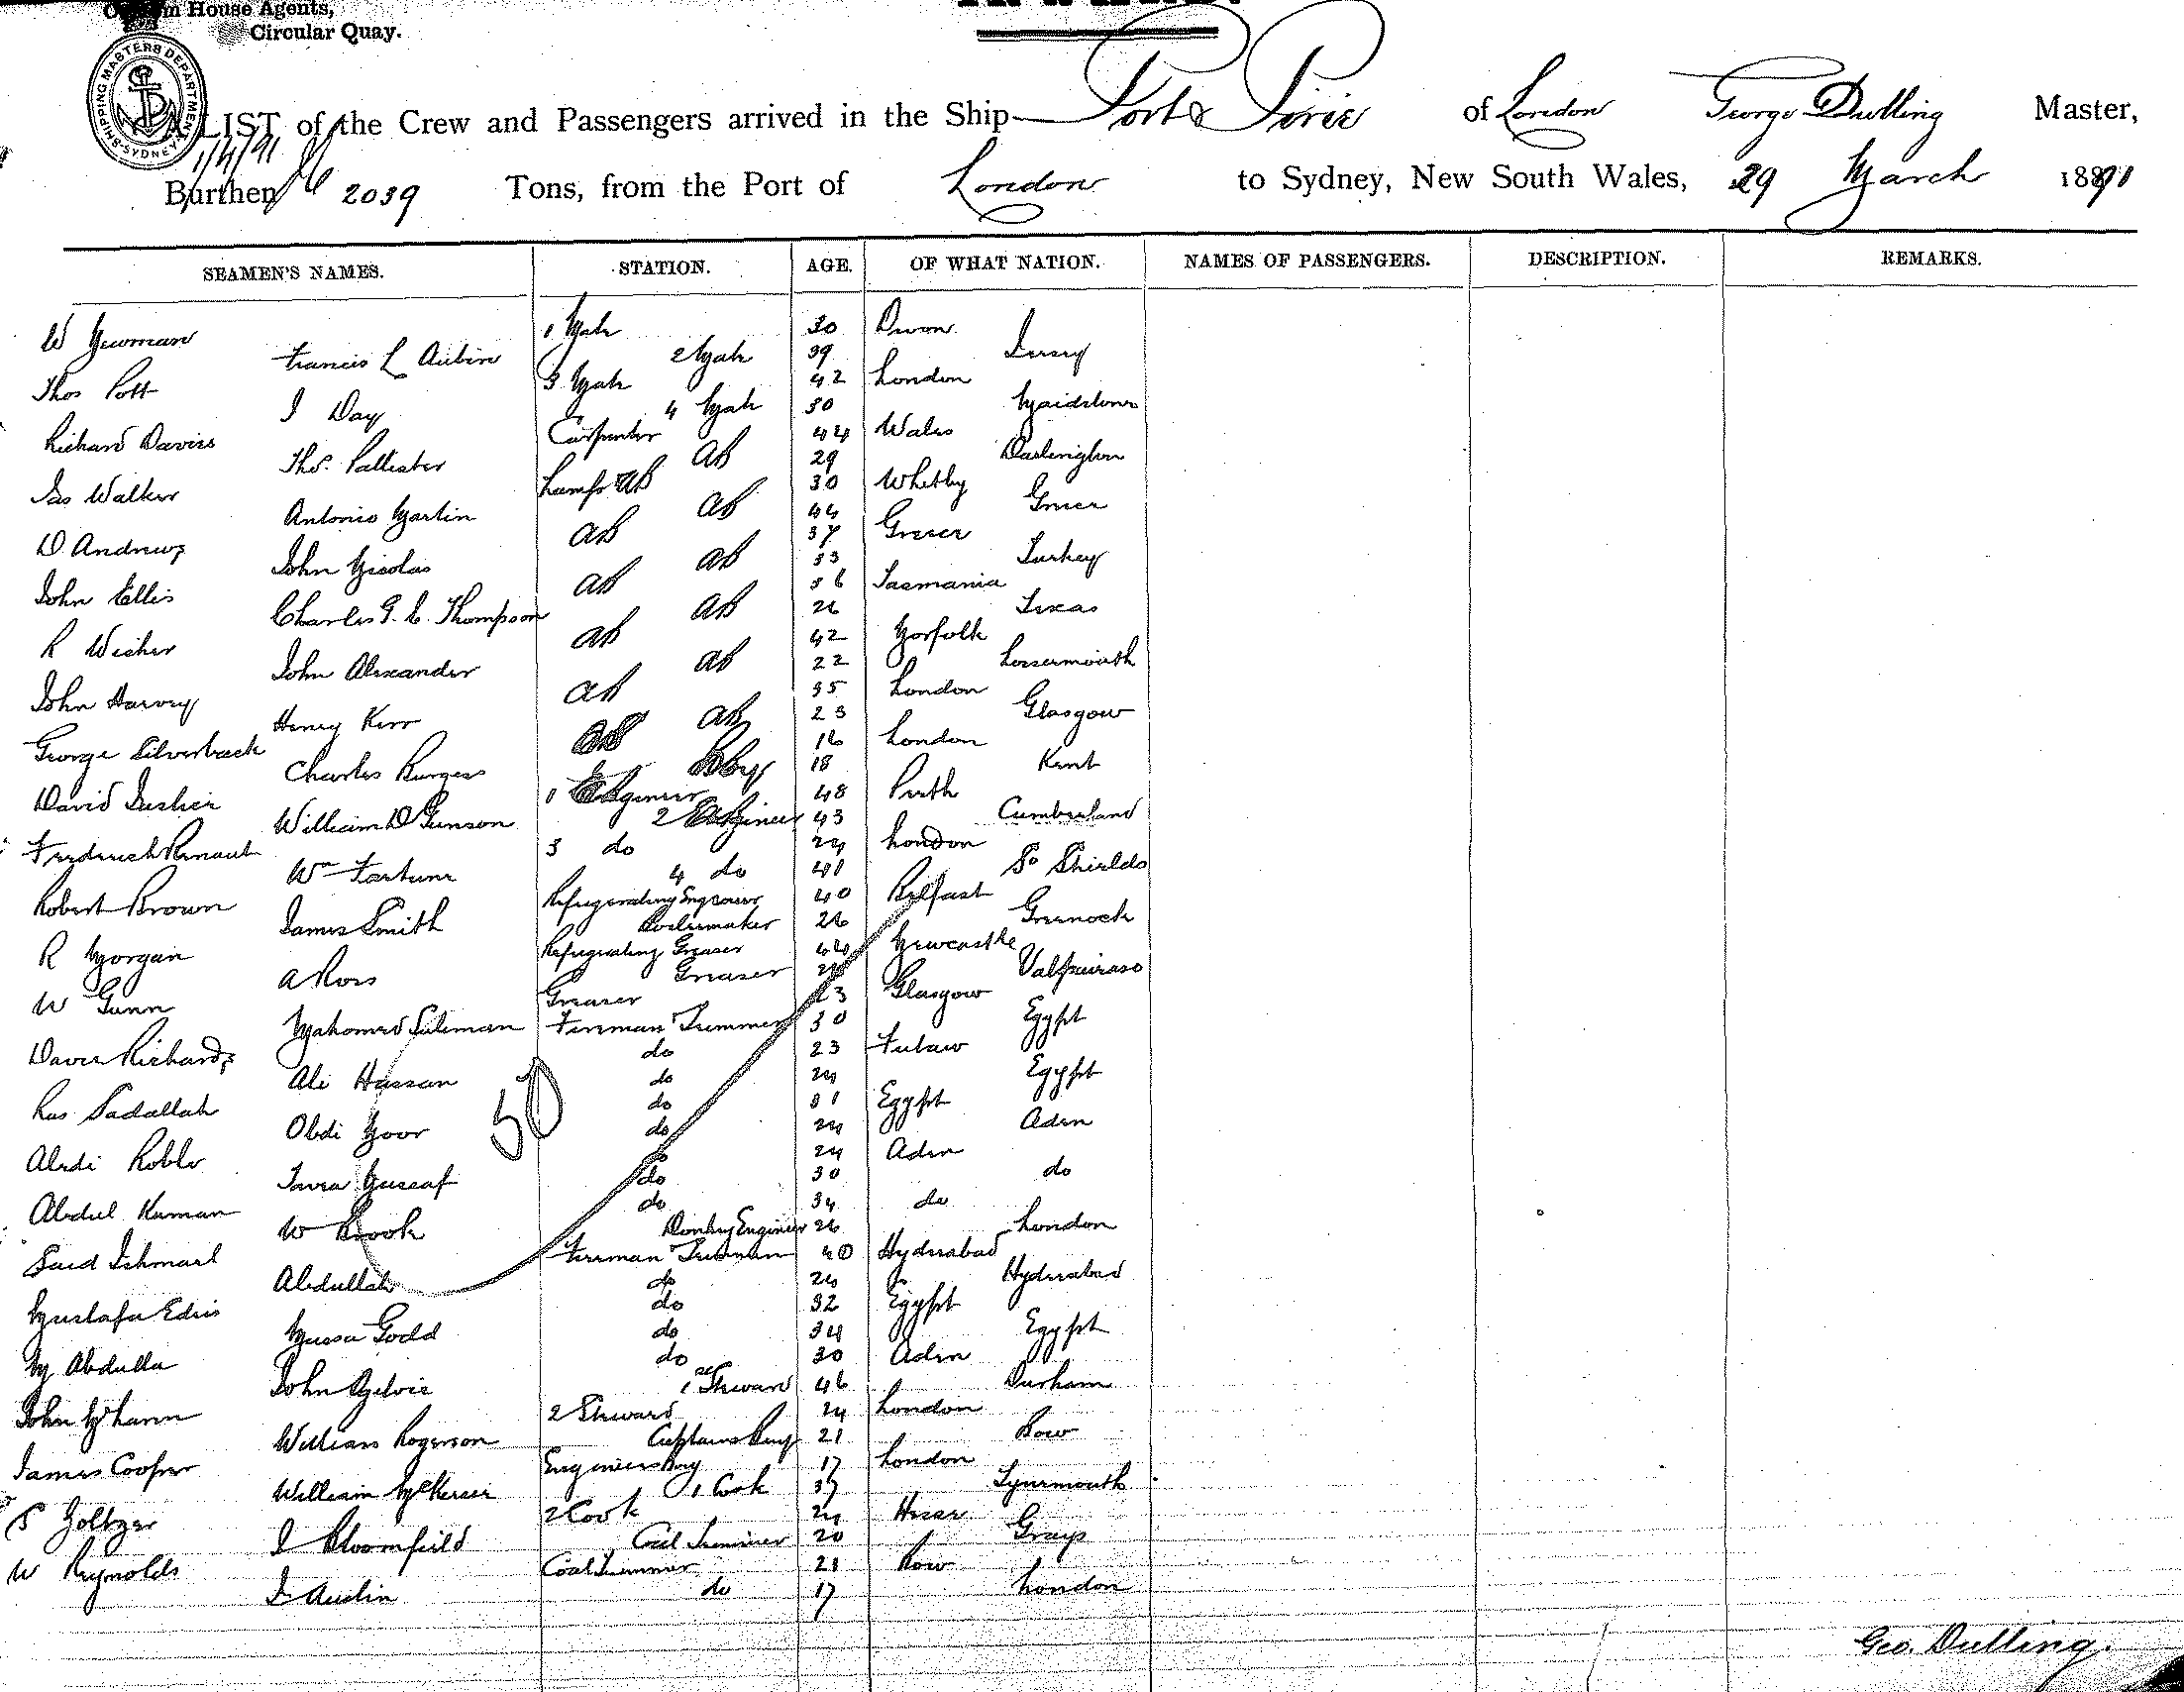 House Agents,
Circular Quay.
SHIPPING MASTERS DEPARTMENT
SYDNEY
A LIST of the Crew and Passengers arrived in the Ship Port Pirie of London George Dulling Master,
1/4/91
Burthen 2039 Tons, from the Port of London to Sydney, New South Wales, 29 March 1891
SEAMEN'S NAMES. STATION. AGE. OF WHAT NATION. NAMES OF PASSENGERS. DESCRIPTION. REMARKS.
W Newman 1 Mate 30 Devon
Francis L Aubin 2 Mate 39 Jersey
Thos Pott 3 Mate 42 London
J Day 4 Mate 30 Maidstone
Richard Davies Carpenter 44 Wales
Thos. Pallister AB 29 Darlington
Jas Walker Lamps AB 30 Whitby
Antonio Martin AB 44 Greece
D. Andrews AB 37 Greece
John Nicolas AB 33 Turkey
John Ellis AB 36 Tasmania
Charles G. C. Thompson AB 26 Texas
R Wicher AB 42 Norfolk
John Alexander AB 22 Lossiemouth
John Harvey AB 35 London
Henry Kerr AB 23 Glasgow
George Silverback 16 London
Charles Burgess Boy 18 Kent
David Lusher 1 Engineer 48 Perth
William D Gunson 2 Engineer 43 Cumberland
Frederick Renaut 3 do 24 London
Wm Fortune 4 do 41 So Shields
Robert Brown Refrigerating Engineer 40 Belfast
James Smith Boilermaker 26 Greenock
R Morgan Refrigerating Greaser 44 Newcastle
A Ross Greaser Valparaiso
W Gunn Greaser 23 Glasgow
Mahomed Suliman Fireman Trimmer 30 Egypt
Richards do 23
Ali Hassan do 24 Egypt
Sadallah do 31 Egypt
Obdi Noor do 24 Aden
50
Abdi Roble do 24 Aden
Yussaf do 30 do
Abdul Raman do 34 do
W Brook Donkey Engineer 26 London
Said Ishmael Fireman Trimmer 40 Hyderabad
Abdullah do 24 Hyderabad
Mustafa Edris do 32 Egypt
Mussa Godd do 34 Egypt
M Abdulla do 30 Aden
John Ogilvie 1 Steward 46 Durham
John McHarm 2 Steward 24 London
William Rogerson Captains Boy 21 Bow
James Cooper Engineers Boy 17 London
William 1 Cook 37 Tynemouth
S Holtzer 2 Cook 24 Hesse
J Bloomfield Coal Trimmer 20 Grays
W Reynolds Coal Trimmer 21 Bow
J Austin do 17 London
Geo. Dulling.